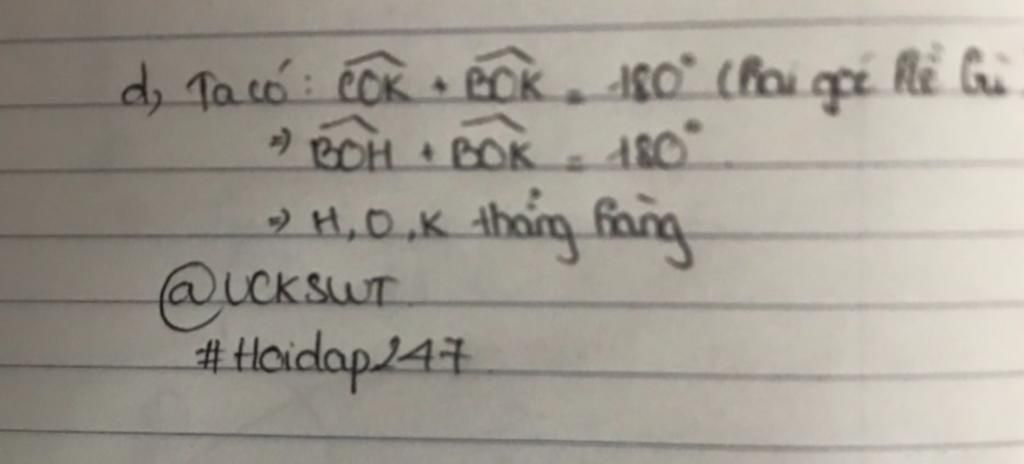 d, Ta có: \widehat{COK} + \widehat{BOK} = 180° (hai góc kề bù
=> \widehat{BOH} + \widehat{BOK} = 180°
=> H, O, K thẳng hàng
@UCKSWT
#Hoidap247